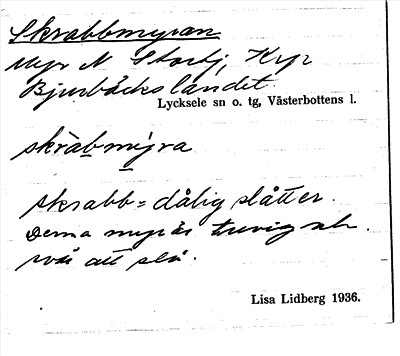 Skrabbmyran
Myr N Storbj, Kyr
Bjurbäckslandet.
Lycksele sn o. tg, Västerbottens l.
skràbmýra
skrabb = dålig slåtter.
Denna myr är
svår att slå.
Lisa Lidberg 1936.